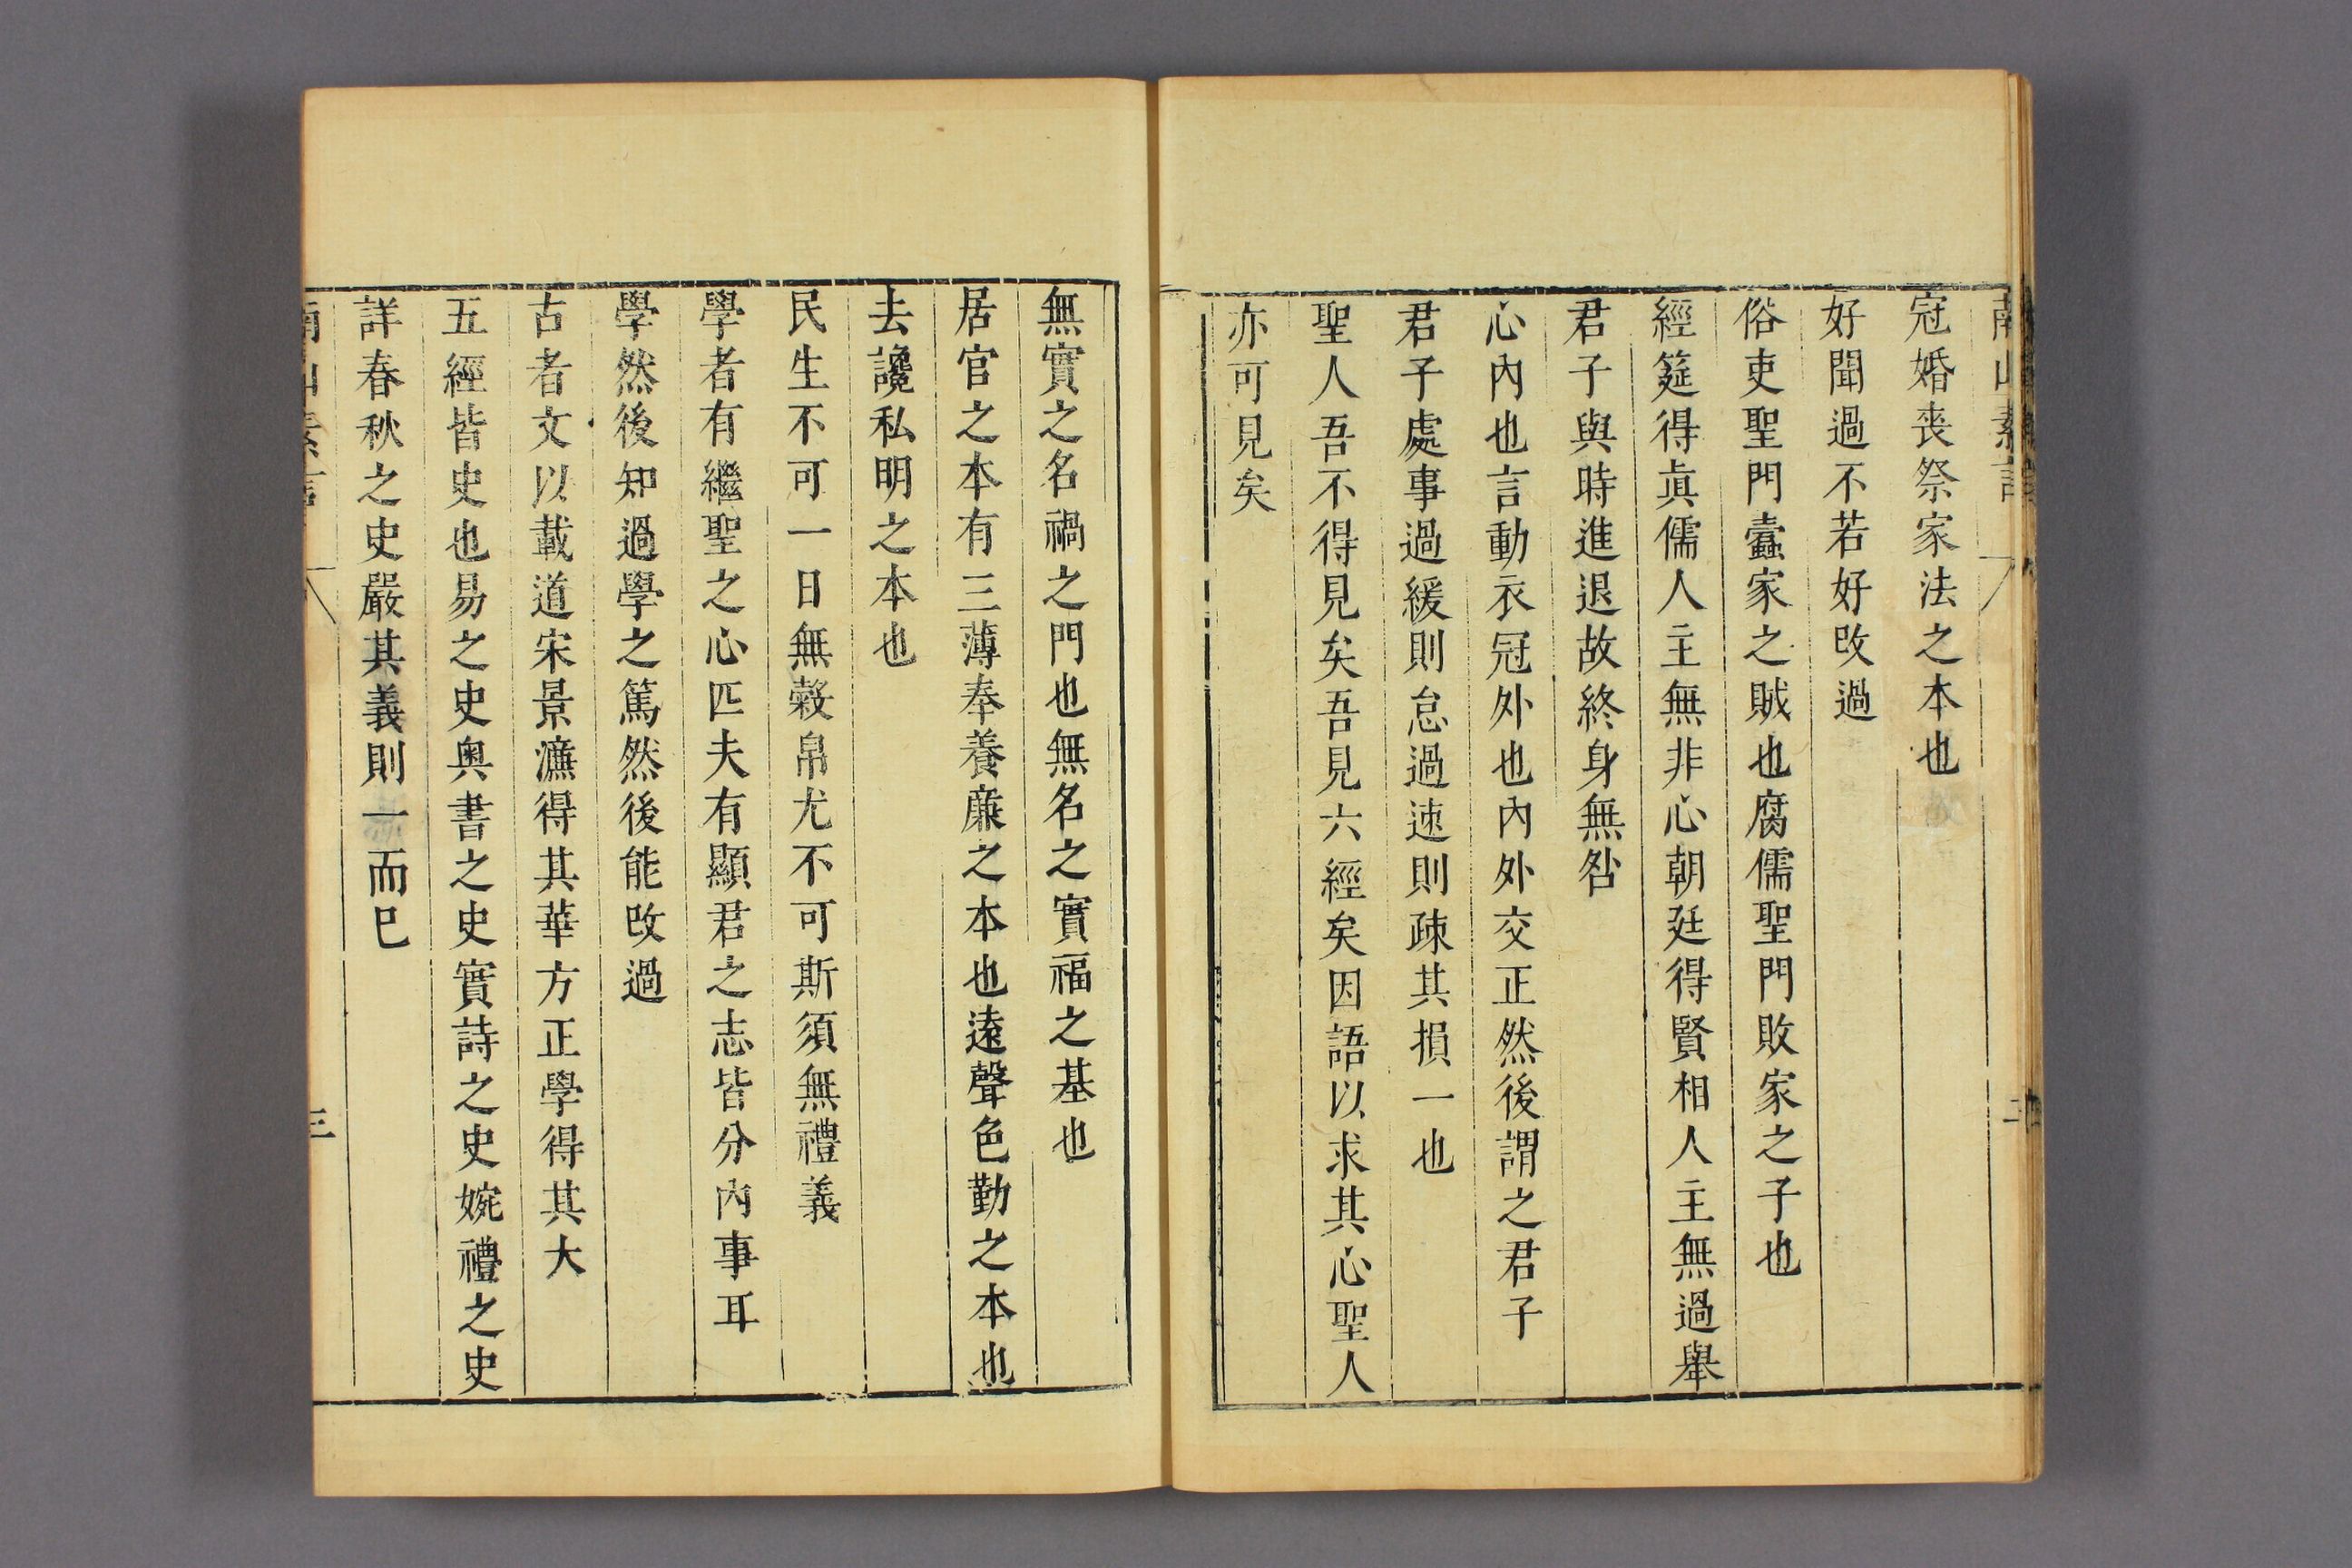 南山素言
二
冠婚喪祭家法之本也
好聞過不若好改過
俗吏聖門蠧家之賊也腐儒聖門敗家之子也
經筵得眞儒人主無非心朝廷得賢相人主無過舉
君子與時進退故終身無咎
心內也言動衣冠外也內外交正然後謂之君子
君子處事過緩則怠過速則疎其損一也
聖人吾不得見矣吾見六經矣因語以求其心聖人
亦可見矣
無實之名禍之門也無名之實福之基也
居官之本有三薄奉養廉之本也遠聲色勤之本也
去讒私明之本也
民生不可一日無穀帛尤不可斯須無禮義
學者有繼聖之心匹夫有顯君之志皆分內事耳
學然後知過學之篤然後能改過
古者文以載道宋景濂得其華方正學得其大
五經皆史也易之史奥書之史實詩之史婉禮之史
詳春秋之史嚴其義則一而已
南山素言
三